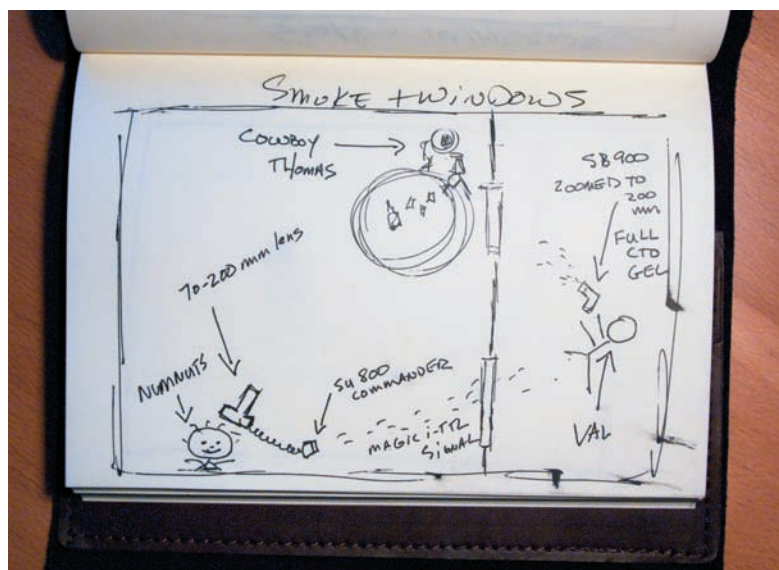 SMOKE + WINDOWS
COWBOY
THOMAS
SB900
ZOOMED TO
200
mm
FULL
CTO
GEL
70-200 mm lens
NUMNUTS
SU 800
COMMANDER
MAGIC i-TTL
SIGNAL
VAL